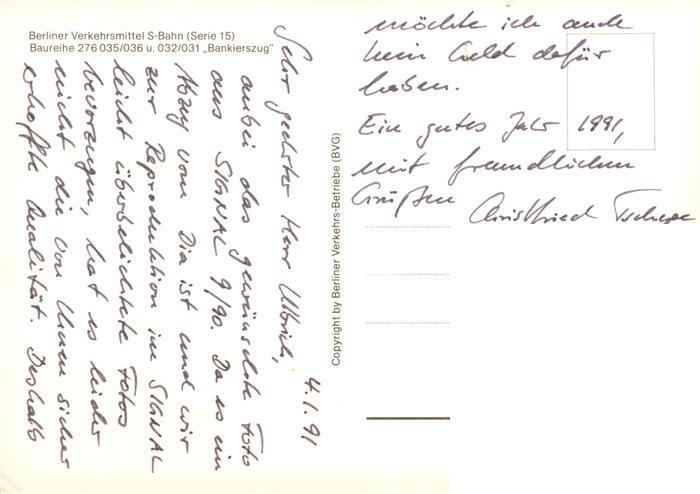 Berliner Verkehrsmittel S-Bahn (Serie 15)
Baureihe 276 035/036 u. 032/031 „Bankierszug"
4.1.91
Sehr geehrter Herr Ulbrich,
anbei das gewünschte Foto
aus SIGNAL 9/90. Da es ein
Abzug vom Dia ist und wir
zur Reproduktion im SIGNAL
leicht überbelichtete Fotos
bevorzugen, hat es leider
nicht die von Ihnen sicher
erhoffte Qualität. Deshalb
möchte ich auch
kein Geld dafür
haben.
Ein gutes Jahr 1991,
mit freundlichen
Grüßen
Christfried Tschepe
Copyright by Berliner Verkehrs-Betriebe (BVG)